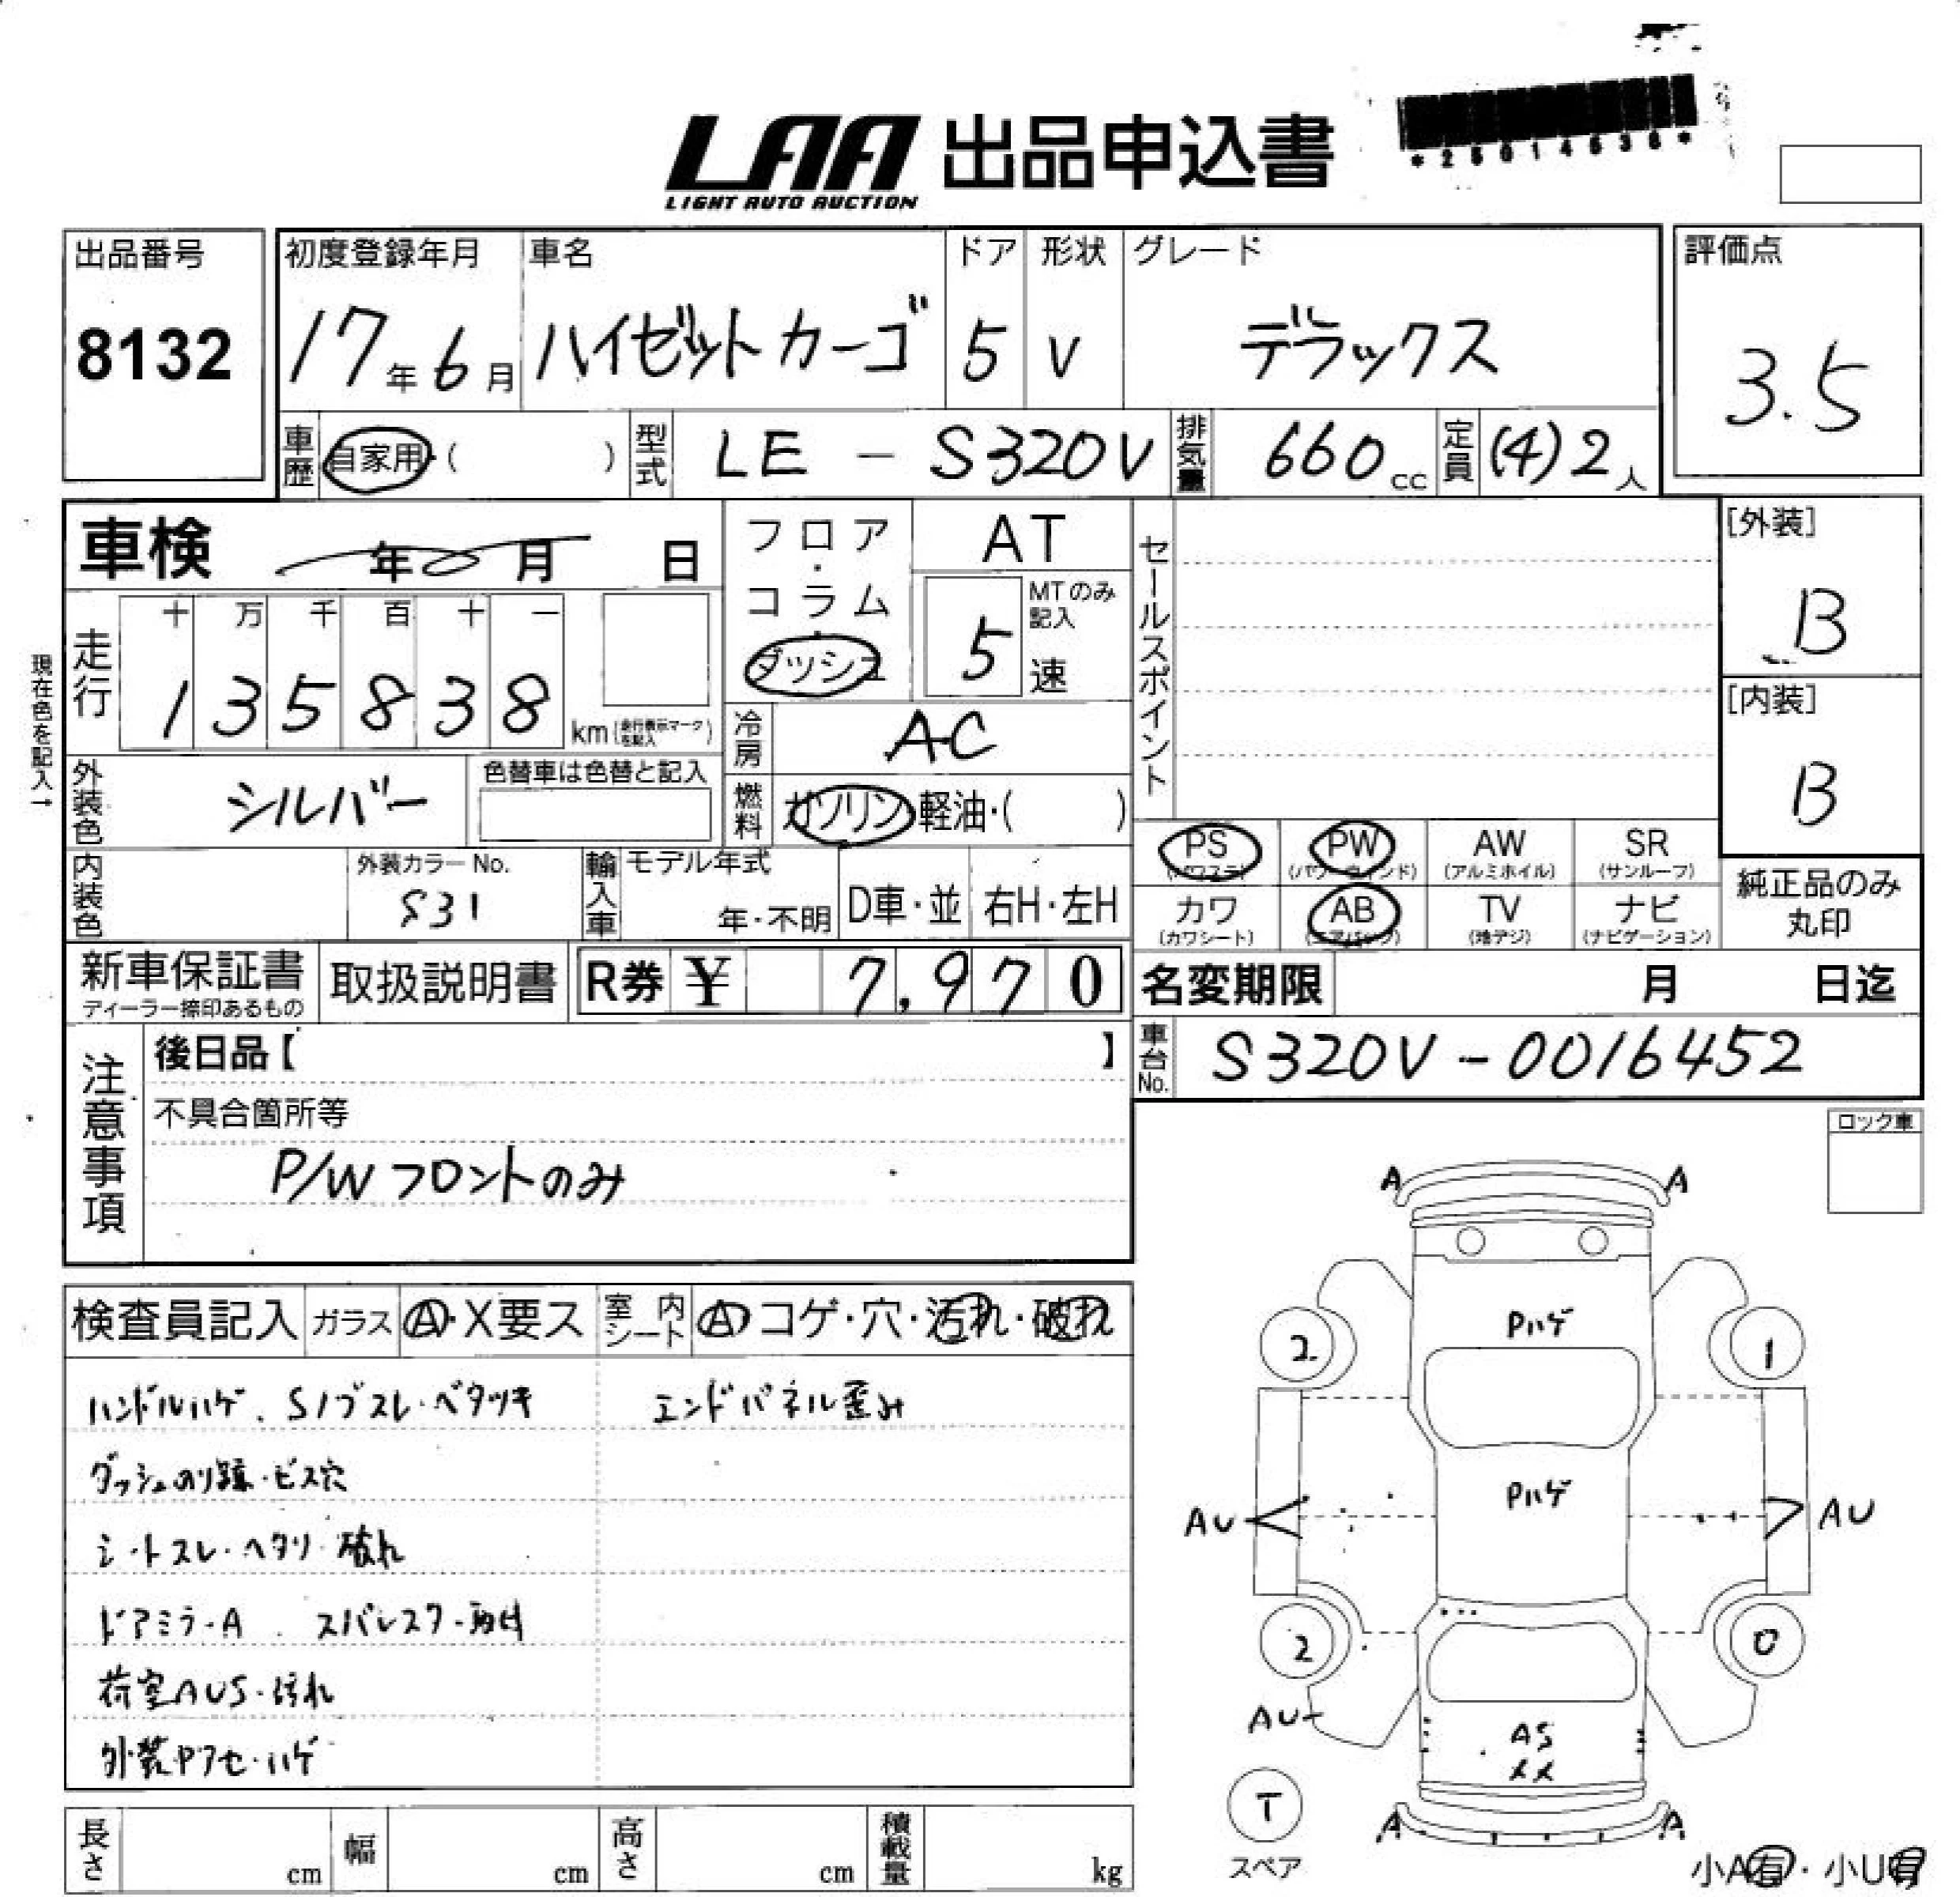 LAA 出品申込書
LIGHT AUTO AUCTION
出品番号
8132
初度登録年月
17年6月
車名
ハイゼットカーゴ
ドア
5
形状
V
グレード
デラックス
評価点
3.5
車歴
自家用・( )
型式
LE - S320V
排気量
660cc
定員
(4)2人
車検 年 月 日
フロア・コラム・ダッシュ
AT
MTのみ記入
5速
セールスポイント
[外装]
B
[内装]
B
現在色を記入→
走行
十 万 千 百 十 一
1 3 5 8 3 8
km(走行表示マークを記入)
冷房
AC
外装色
シルバー
色替車は色替と記入
燃料
ガソリン・軽油・( )
PS AW SR PW
(パワステ) (パワーウィンド) (アルミホイル) (サンルーフ)
カワ AB TV ナビ
(カワシート) (エアバッグ) (地デジ) (ナビゲーション)
純正品のみ丸印
内装色
外装カラーNo.
S31
輸入車
モデル年式
年・不明
D車・並
右H・左H
新車保証書
ディーラー捺印あるもの
取扱説明書
R券 ¥ 7,970
名変期限 月 日迄
車台No.
S320V-0016452
注意事項
後日品【 】
不具合箇所等
P/Wフロントのみ
ロック車
検査員記入
ガラス
A・X要ス
室内シート
A コゲ・穴・汚れ・破れ
ハンドルハゲ、Sノブスレ・ベタツキ
エンドパネル歪み
ダッシュのり跡・ビス穴
シートスレ・ヘタリ・破れ
ドアミラーA
荷室AUS・汚れ
外装Pアセ・ハゲ
A A
Pハゲ
2 1
Pハゲ
AU AU
2 0
AU
AS
XX
T
スペア
A A
小A有・小U有
長さ cm
幅 cm
高さ cm
積載量 kg